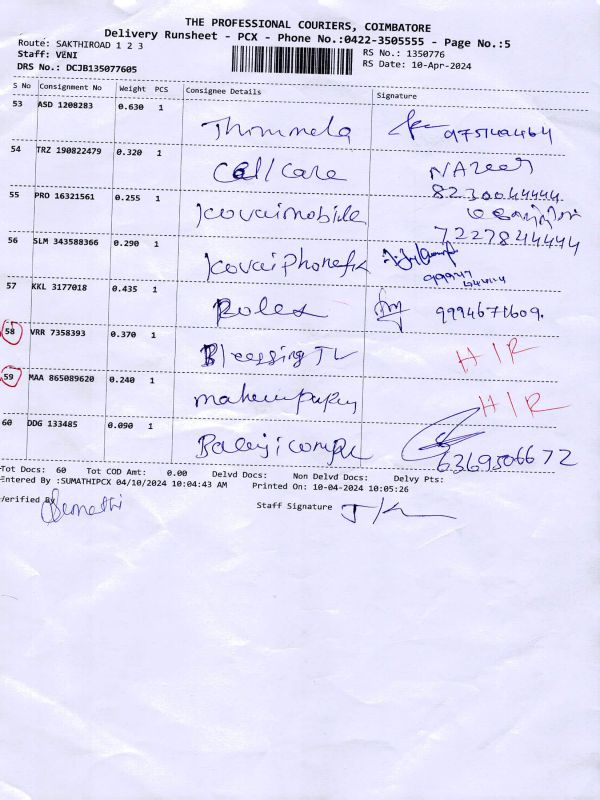 THE PROFESSIONAL COURIERS, COIMBATORE
Delivery Runsheet - PCX - Phone No.:0422-3505555 - Page No.:5
Route: SAKTHIROAD 1 2 3 RS No.: 1350776
Staff: VENI RS Date: 10-Apr-2024
DRS No.: DCJB135077605
S No Consignment No Weight PCS Consignee Details Signature
53 ASD 1208283 0.630 1
54 TRZ 190822479 0.320 1 Cell care NAZEER
8230044444
55 PRO 16321561 0.255 1 kovaimobile
7227844444
56 SLM 343588366 0.290 1 kovaiphonefix
57 KKL 3177018 0.435 1 Rolex 9994671609.
58 VRR 7358393 0.370 1 Blessing TL H/R
59 MAA 865089620 0.240 1 H/R
60 DDG 133485 0.090 1 Balaji compu
6369506672
Tot Docs: 60 Tot COD Amt: 0.00 Delvd Docs: Non Delvd Docs: Delvy Pts:
Entered By :SUMATHIPCX 04/10/2024 10:04:43 AM Printed On: 10-04-2024 10:05:26
Verified By Sumathi Staff Signature